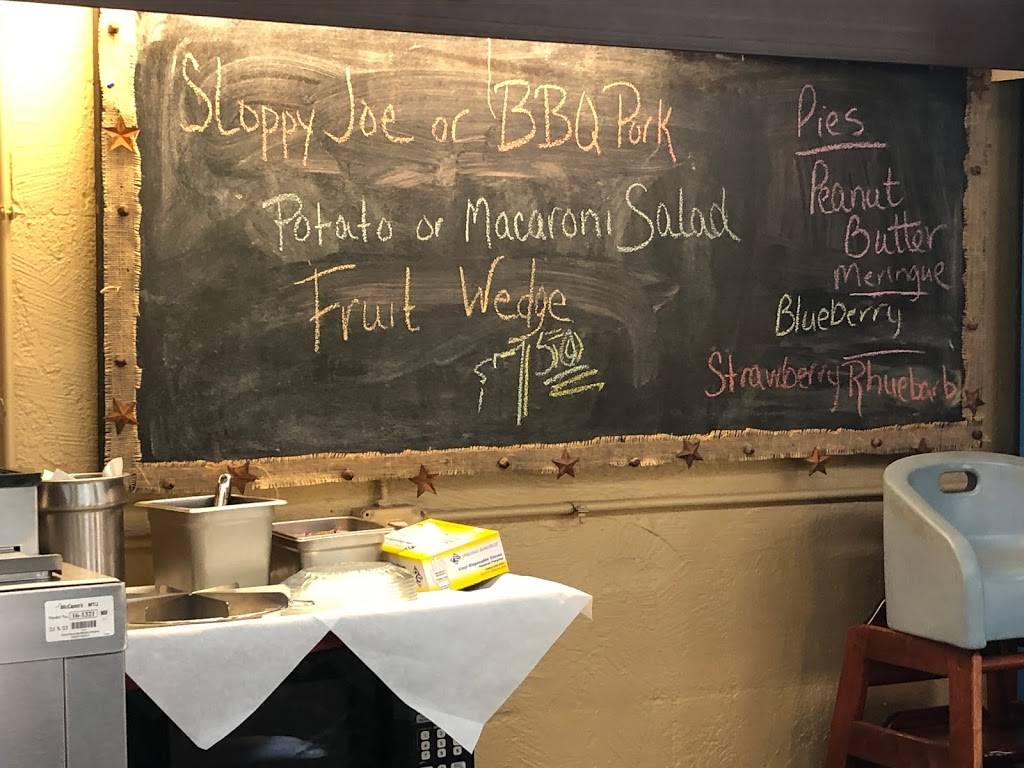 Sloppy Joe or BBQ Pork
Potato or Macaroni Salad
Fruit Wedge
$7.50
Pies
Peanut
Butter
Meringue
Blueberry
Strawberry Rhuebarb
16-1321